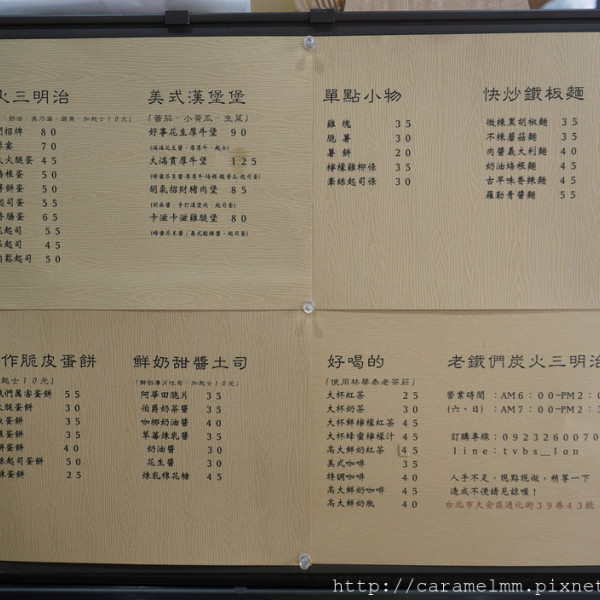 火三明治
們招牌 80
70
火腿蛋 45
培根蛋 50
薯餅蛋 50
起司蛋 55
香腸蛋 65
起司 55
起司 45
肉鬆起司 50
美式漢堡堡
(蕃茄、小黃瓜、生菜)
好事花生厚牛堡 90
大滿貫厚牛堡 125
胡氣招財豬肉堡 85
卡滋卡滋雞腿堡 80
單點小物
雞塊 35
脆薯 30
薯餅 20
檸檬雞柳條 35
牽絲起司條 30
快炒鐵板麵
微辣黑胡椒麵 35
不辣蘑菇麵 35
肉醬義大利麵 40
奶油培根麵 45
古早味香辣麵 45
羅勒青醬麵 55
作脆皮蛋餅
起士10元)
我們萬害蛋餅 55
火腿蛋餅 30
蛋餅 30
蛋餅 35
蛋餅 40
起司蛋餅 50
蛋餅 25
鮮奶甜醬土司
(鮮奶厚片吐司，加起士10元)
阿華田脆片 35
伯爵奶茶醬 35
咖椰奶油醬 40
草莓煉乳醬 35
奶油醬 30
花生醬 30
煉乳棉花糖 45
好喝的
(使用林華泰老茶莊)
大杯紅茶 25
大杯奶茶 30
大杯鮮檸檬紅茶 45
大杯蜂蜜檸檬汁 45
高大鮮奶紅茶 45
美式咖啡 35
特調咖啡 40
高大鮮奶咖啡 45
高大鮮奶瓶 40
老鐵們炭火三明治
營業時間 :AM6:00-PM2:0
(六、日) :AM7:00-PM2:
訂購專線：0923260070
line：tvbs_lan
人手不足，現點現做，稍等一下
造成不便請見諒喔！
台北市大安區通化街39巷43號
http://caramelmm.pixnet